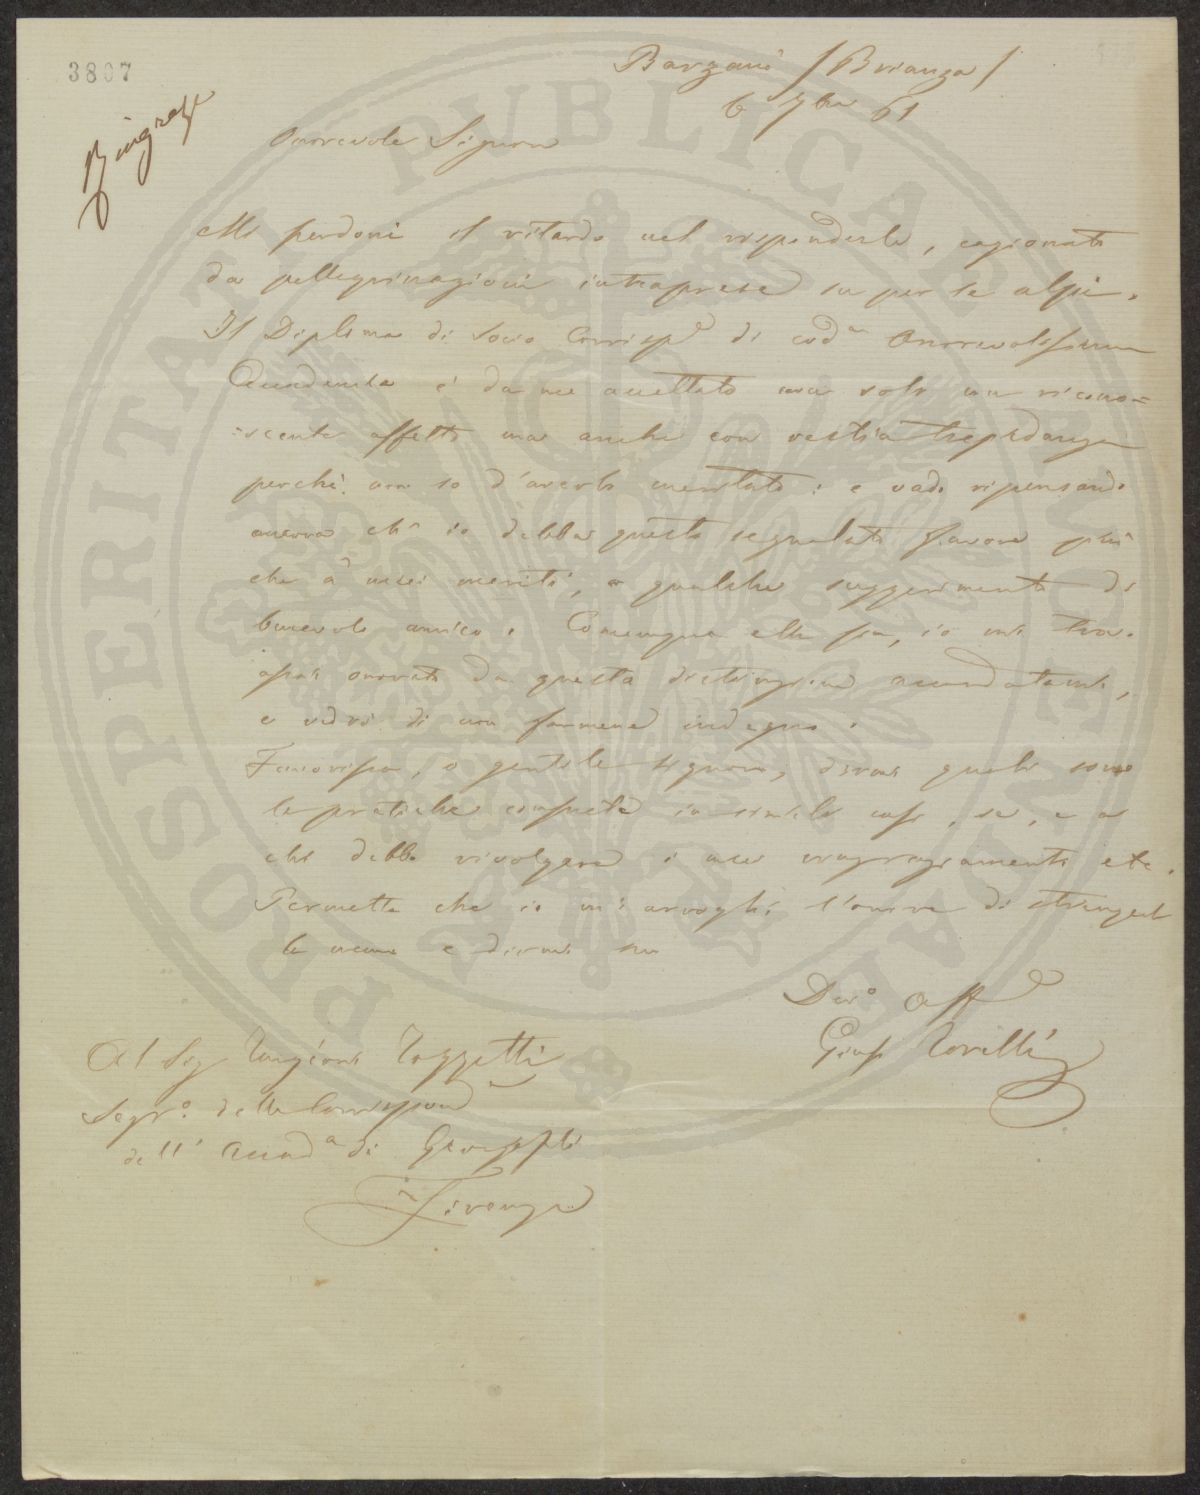 3807
Ringrazia
Barzanò / Brianza /
6 7bre 61
Onorevole Signore
Mi perdoni il ritardo nel risponderle, cagionato
da pellegrinazioni intraprese su per le alpi.
Il Diploma di Socio Corrispe di coda Onorevolissima
Accademia è da me accettato non solo con ricono=
=scente affetto ma anche con certa trepidanza
perchè non so d'averlo meritato: e vado ripensando
ancora ch'io debba questo segnalato favore più
che a' miei meriti, a qualche suggerimento di
benevolo amico. Comunque ella sia, io mi trovo
assai onorato da questa distinzione accordatami,
e vedrò di non farmene indegno.
Favorisca, o gentile signore, dirmi quali sono
le pratiche consuete in simili casi, se, e a
chi debba rivolgere i miei ringraziamenti etc.
Permetta che io mi arroghi l'onore di stringerle
la mano e dirmi suo
Devo Affe
Gius Torelli
Al Sig Targioni Tozzetti
Segro. delle Corrispond
dell' Accada di Georgofili
in Firenze
PROSPERITATI PUBLICAE AUGENDAE